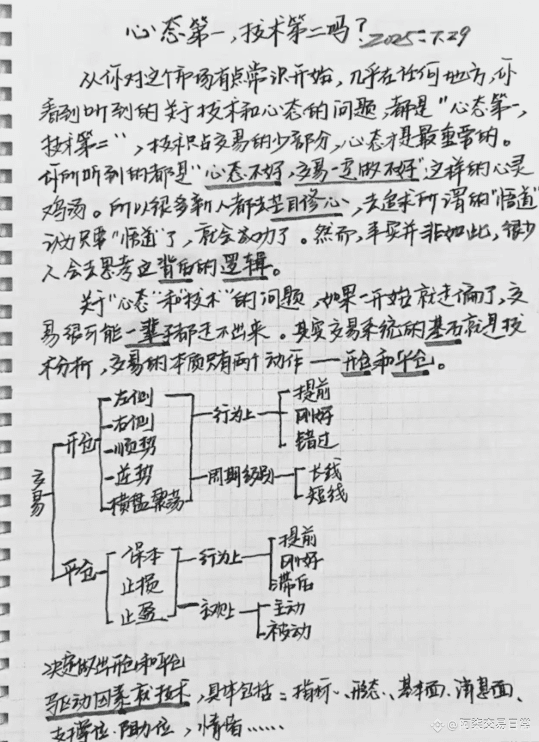 心态第一,技术第二吗? 2025.7.29
从你对这个市场有点常识开始,几乎在任何地方,你
看到听到的关于技术和心态的问题,都是"心态第一,
技术第二",技术只占交易的少部分,心态才是最重要的。
你所听到的都是"心态不好,交易一定做不好"这样的心灵
鸡汤。所以很多新人都去盲目修心,去追求所谓的"悟道"
认为只要"悟道"了,就会成功了。然而,事实并非如此,很少
人会去思考它背后的逻辑。
关于"心态"和"技术"的问题,如果一开始就走偏了,交
易很可能一辈子都走不出来。其实交易系统的基石就是技
术分析,交易的本质只有两个动作——开仓和平仓。
交易
开仓
左侧
右侧
顺势
逆势
横盘震荡
行为上
提前
刚好
错过
周期级别
长线
短线
平仓
保本
止损
止盈
行为上
提前
刚好
滞后
主观上
主动
被动
决定做出开仓和平仓
驱动因素就技术,具体包括:指标、形态、基本面、消息面、
支撑位、阻力位,情绪……
交易日常